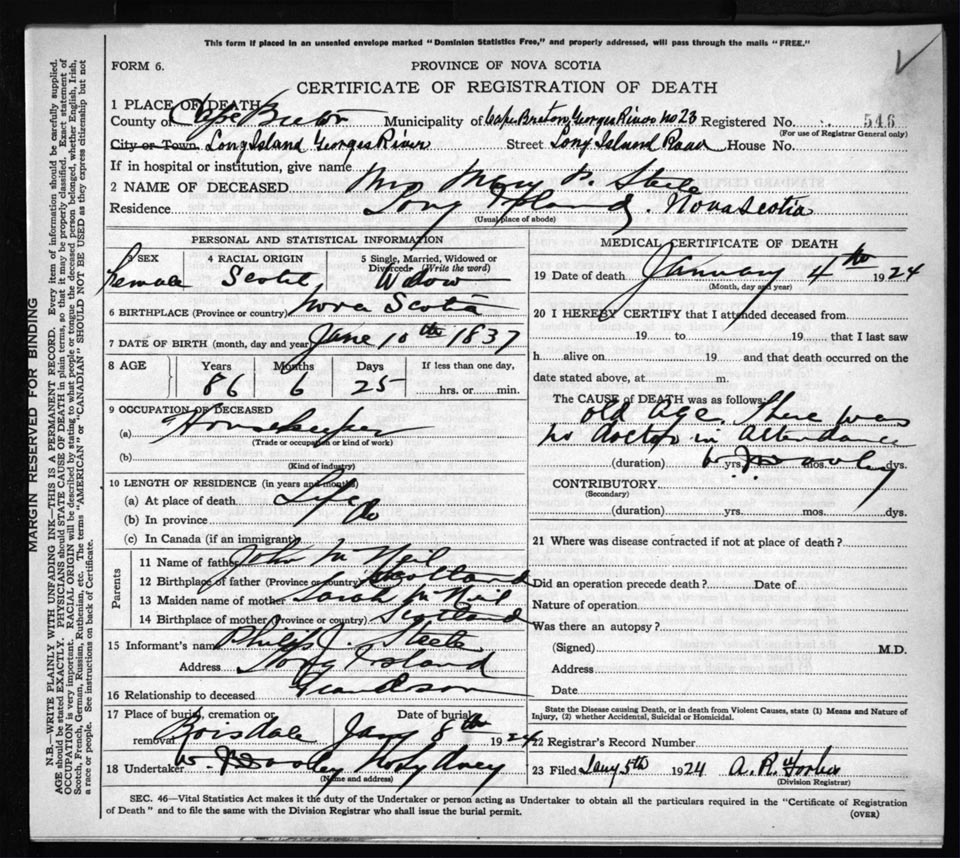 This form if placed in an unsealed envelope marked "Dominion Statistics Free," and properly addressed, will pass through the mails "FREE."
FORM 6.
PROVINCE OF NOVA SCOTIA
CERTIFICATE OF REGISTRATION OF DEATH
1 PLACE OF DEATH
County of Cape Breton Municipality of Cape Breton Georges River no 23 Registered No. 546
(For use of Registrar General only)
City or Town Long Island Georges River Street Long Island Road House No.
If in hospital or institution, give name
2 NAME OF DECEASED Mrs Mary P. Steele
Residence Long Island, Nova Scotia
(Usual place of abode)
PERSONAL AND STATISTICAL INFORMATION
3 SEX 4 RACIAL ORIGIN 5 Single, Married, Widowed or Divorced (Write the word)
Female Scotch Widow
6 BIRTHPLACE (Province or country) Nova Scotia
7 DATE OF BIRTH (month, day and year) June 10th 1837
8 AGE Years Months Days If less than one day,
86 6 25 hrs. or min.
9 OCCUPATION OF DECEASED
(a) Housekeeper
(Trade or occupation or kind of work)
(b)
(Kind of industry)
10 LENGTH OF RESIDENCE (in years and months)
(a) At place of death Life
(b) In province Do
(c) In Canada (if an immigrant)
Parents
11 Name of father John McNeil
12 Birthplace of father (Province or country) Scotland
13 Maiden name of mother Sarah McNeil
14 Birthplace of mother (Province or country) Scotland
15 Informant's name Philip J. Steele
Address Long Island
16 Relationship to deceased Grandson
17 Place of burial, cremation or removal Boisdale Date of burial Jany 8th 1924
18 Undertaker W. J. Dooley No Sydney
(Name and address)
MEDICAL CERTIFICATE OF DEATH
19 Date of death January 4th 1924
(Month, day and year)
20 I HEREBY CERTIFY that I attended deceased from
19 to 19 that I last saw
h alive on 19 and that death occurred on the
date stated above, at m.
The CAUSE of DEATH was as follows:
old age. There was
no doctor in attendance
(duration) yrs. mos. dys.
W. J. Dooley
CONTRIBUTORY
(Secondary)
(duration) yrs. mos. dys.
21 Where was disease contracted if not at place of death?
Did an operation precede death? Date of
Nature of operation
Was there an autopsy?
(Signed) M.D.
Address
Date
State the Disease causing Death, or in death from Violent Causes, state (1) Means and Nature of
Injury, (2) whether Accidental, Suicidal or Homicidal.
22 Registrar's Record Number
23 Filed Jany 5th 1924 A. R. Forbes
(Division Registrar)
SEC. 46—Vital Statistics Act makes it the duty of the Undertaker or person acting as Undertaker to obtain all the particulars required in the "Certificate of Registration
of Death" and to file the same with the Division Registrar who shall issue the burial permit.
(OVER)
MARGIN RESERVED FOR BINDING
N.B.—WRITE PLAINLY WITH UNFADING INK—THIS IS A PERMANENT RECORD. Every item of information should be carefully supplied.
AGE should be stated EXACTLY. PHYSICIANS should STATE CAUSE OF DEATH in plain terms, so that it may be properly classified. Exact statement of
OCCUPATION is very important. RACIAL ORIGIN will be described by stating to what people or tongue the deceased person belonged, whether English, Irish,
Scotch, French, German, Russian, Ruthenian, etc. The terms "AMERICAN" or "CANADIAN" SHOULD NOT BE USED as they express citizenship but not
a race or people. See instructions on back of Certificate.